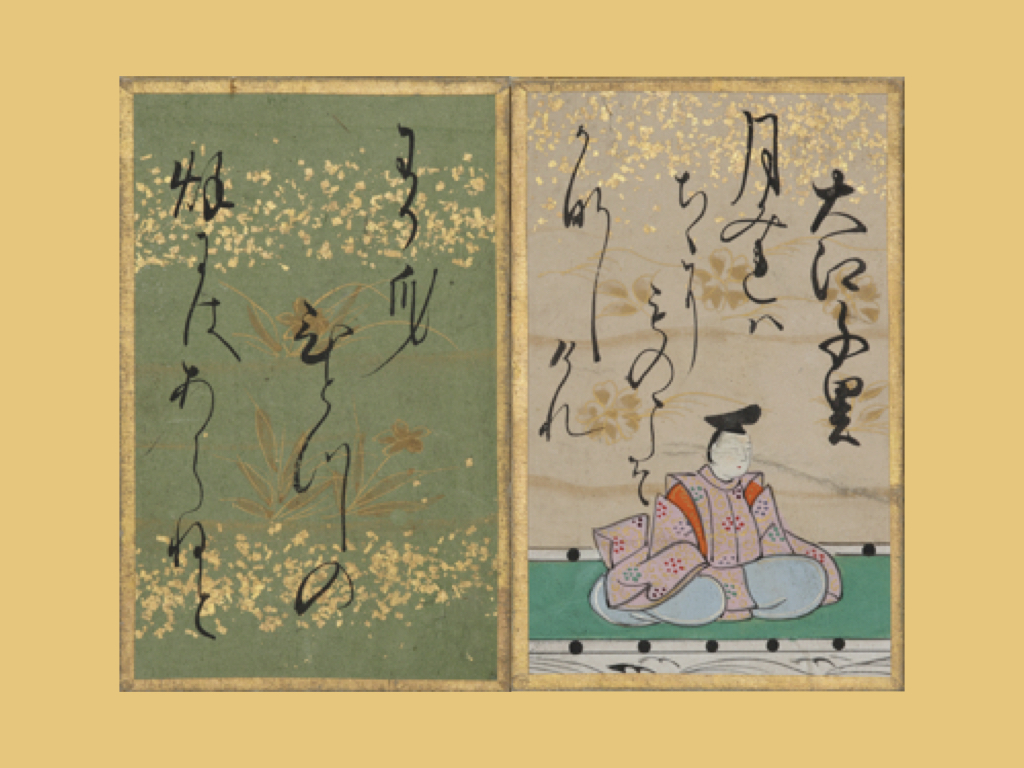 大江千里
月みれハ
ちゝに
ものこそ
かなしけれ
わか身
ひとつの
秋にはあらねと